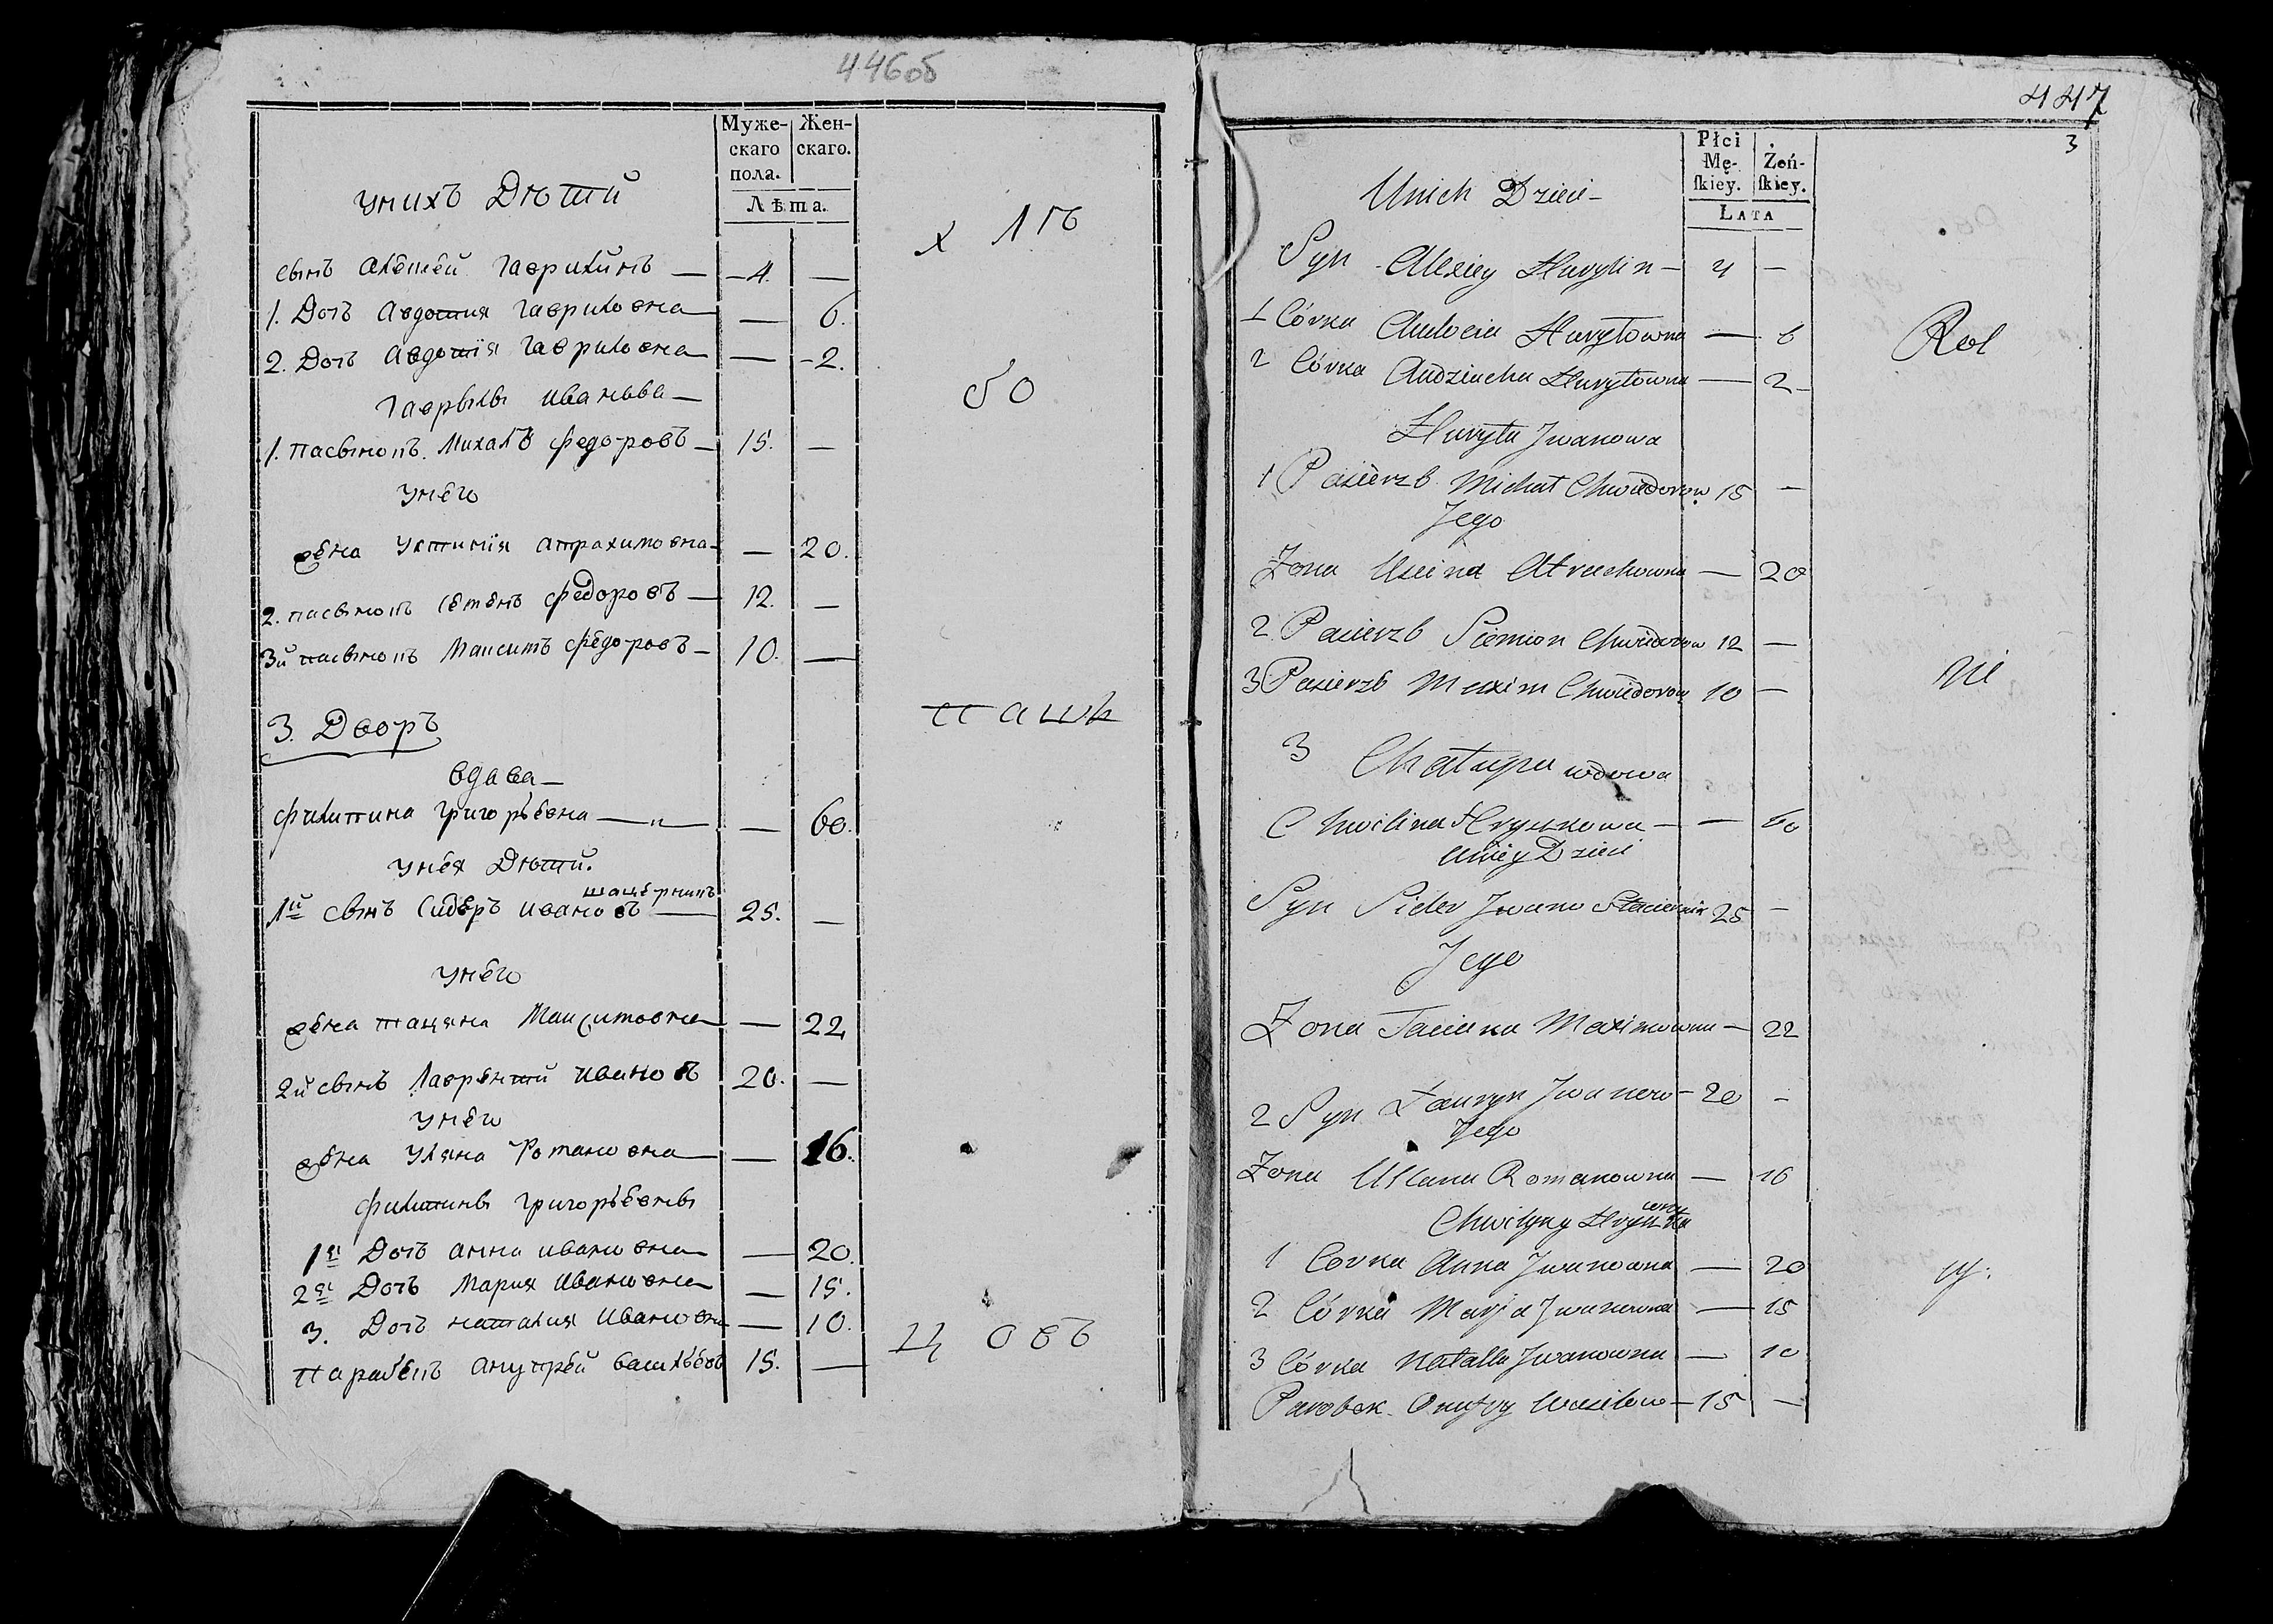 446об
Муже-
скаго
пола.
Жен-
скаго.
Лѣта.
унихъ Дѣтй
сынъ Алѣѯѣй Гаврилинъ — 4. —
1. Дочь Авдотия Гавриловна — 6.
2. Дочь Авдотія Гавриловна — 2.
Гаврылы Иванова —
1. пасынокъ Михалъ Федоровъ — 15. —
унего
жена Устинія Атрахимовна — 20.
2. пасынокъ Семенъ Федоровъ — 12. —
3й пасынокъ Максимъ Федоровъ — 10. —
3. Дворъ
вдава —
Филипина Григорьевна — „ — — 60.
унея Дѣтй.
1й сынъ Сидеръ Ивановъ — 25. —
унего
жена тацяна Максимовна — 22
2й сынъ Лаврентй Ивановъ 20. —
унего
жена Уляна Романовна — 16.
Филипины Григорьевны
1я Дочь анна ивановна — 20.
2я Дочь Мария Ивановна — 15.
3. Дочь наталия Ивановна — 10.
Парабекъ Ануфрей Васильевъ 15. —
х лѣ
бо
паш
ц овъ
447
3
Płci
Mę-
skiey.
Żeń-
skiey.
Lata
Unich Dzieci —
Syn Alexiey Hurylin — 4 —
1 Córka Audocia Hurylowna — 6
2 Córka Audziucha Hurylowna — 2 —
Huryla Jwanowa
1 Pasierzb Michał Chwiedorow 15 —
Jego
Żona Uscina Atrachowna — 20
2 Pasierzb Siemion Chwiedorow 12 —
3 Pasierzb Maxim Chwiedorow 10 —
3 Chałupa wdowa
Chwilina Hryszkowa — — 60
Uniey Dzieci
Syn Sider Jwano Staciernik 25 —
Jego
Żona Taciana Maximowna — 22
2 Syn Łauryn Jwanow — 20 —
Jego
Żona Ullana Romanowna — 16
Chwilyny Hryszko
1 Corka Anna Jwanowna — 20
2 Córka Marja Jwanowna — 15
3 Córka Natalla Jwanowna — 10
Parobek Onufry Wasilow — 15 —
Rol
ni
cy.